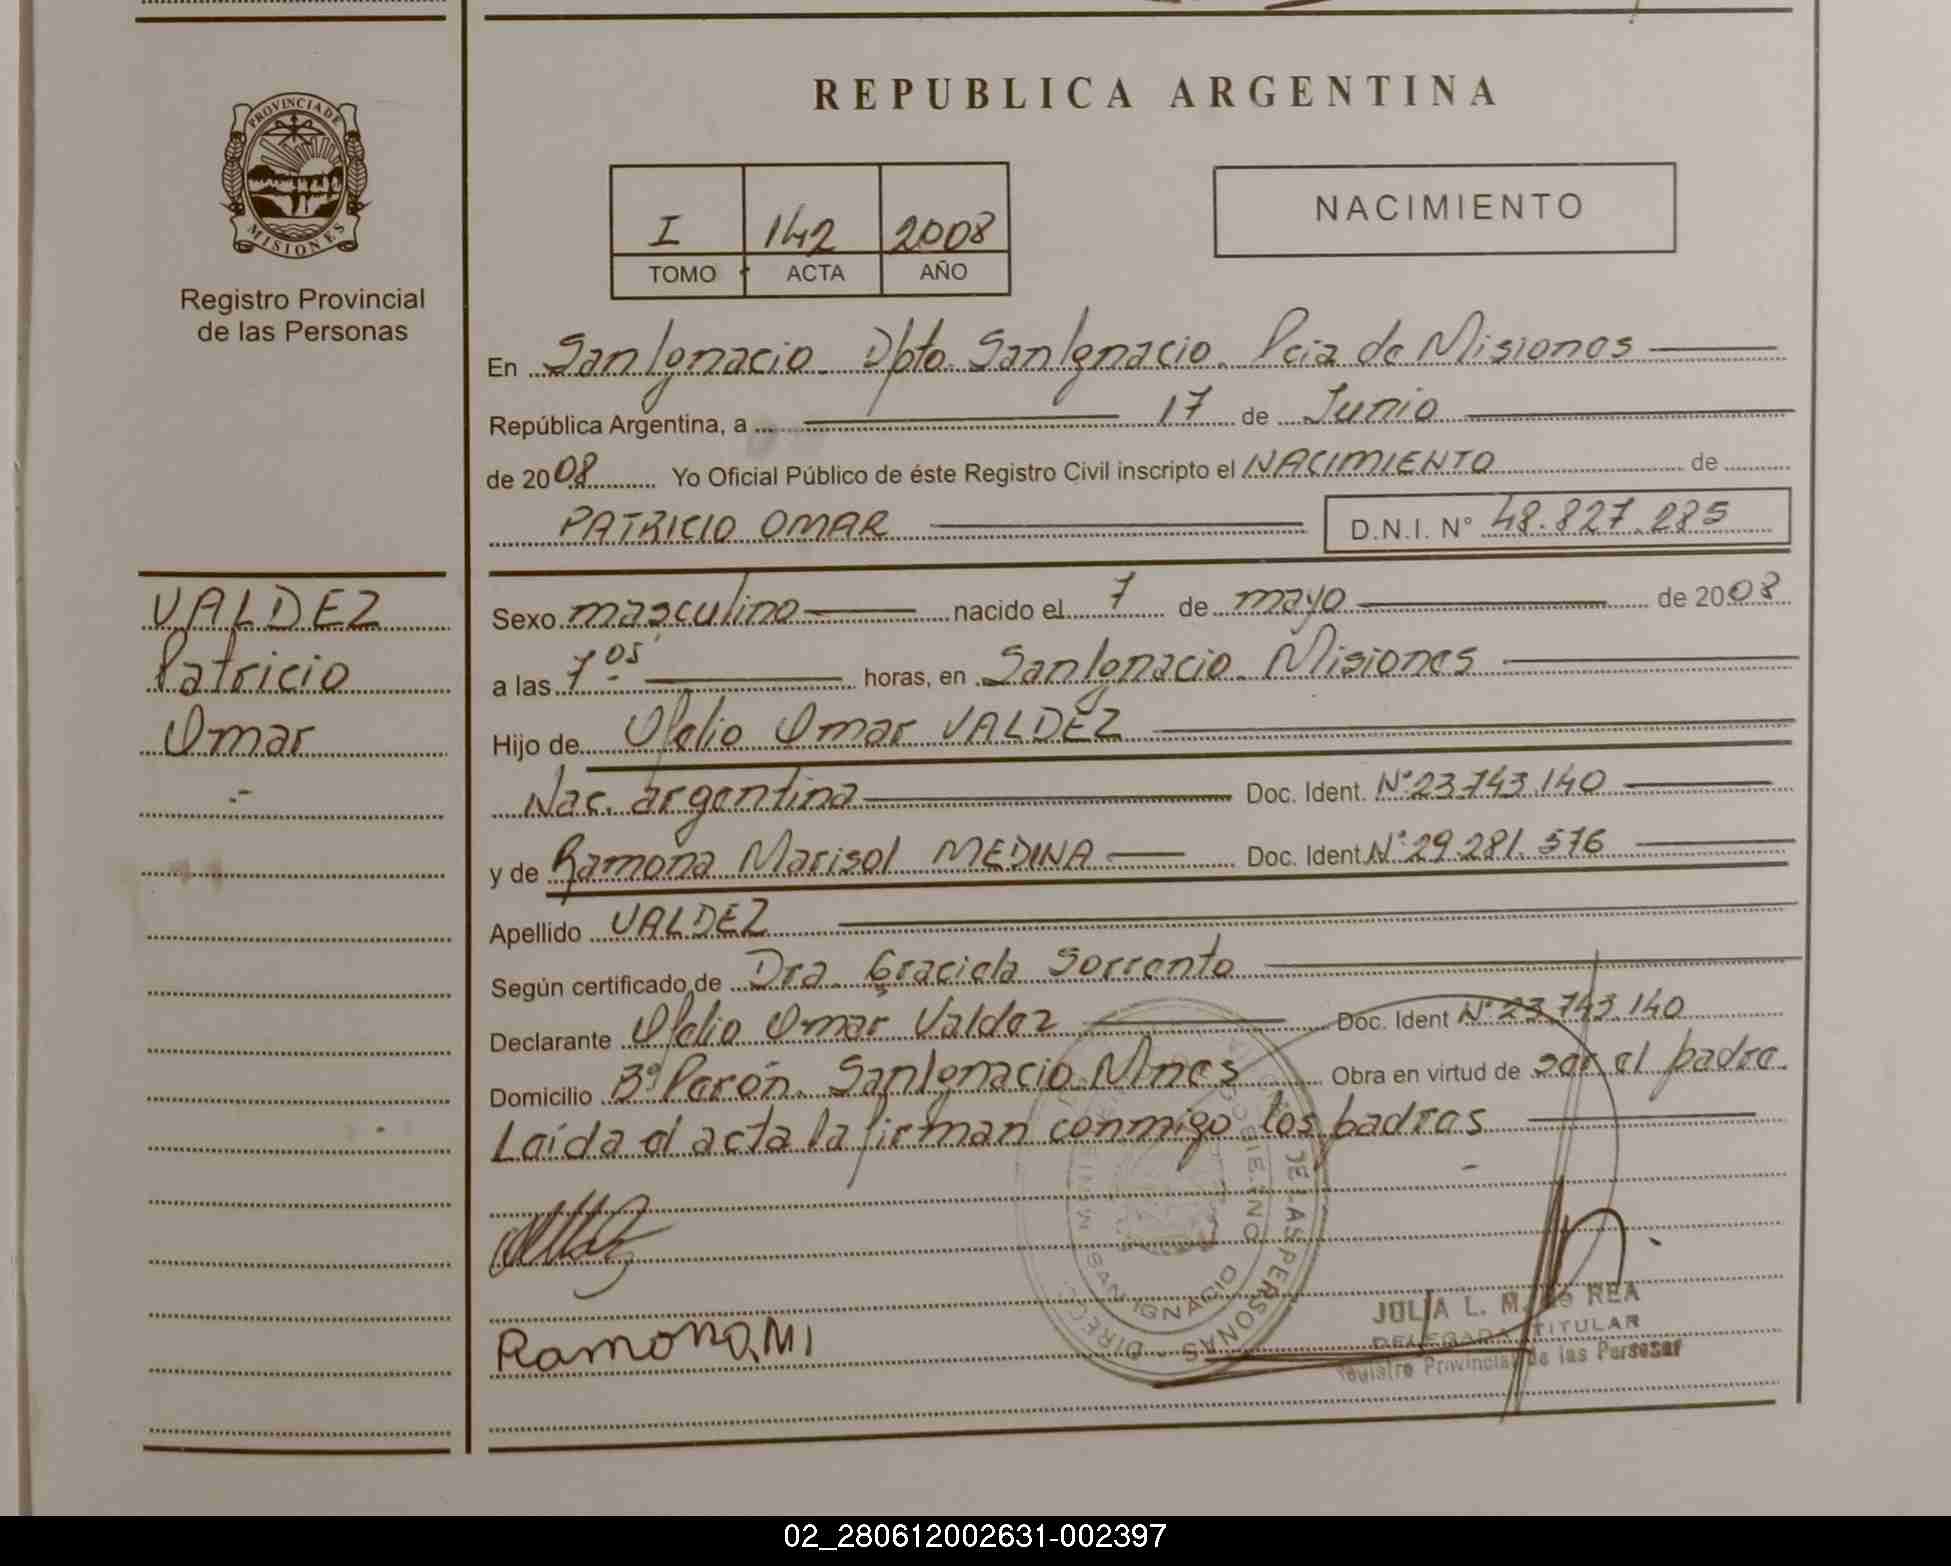 REPUBLICA ARGENTINA
PROVINCIA DE
MISIONES
Registro Provincial
de las Personas
I 142 2008
TOMO ACTA AÑO
NACIMIENTO
En San Ignacio. Dpto. San Ignacio. Pcia de Misiones
República Argentina, a 17 de Junio
de 2008 Yo Oficial Público de éste Registro Civil inscripto el NACIMIENTO de
PATRICIO OMAR D.N.I. N° 48.827.285
VALDEZ
Patricio
Omar
Sexo masculino nacido el 7 de mayo de 2008
a las 7 05 horas, en San Ignacio. Misiones
Hijo de Ofelio Omar VALDEZ
Nac. argentina Doc. Ident. N° 23.743.140
y de Ramona Marisol MEDINA Doc. Ident. N° 29.281.576
Apellido VALDEZ
Según certificado de Dra. Graciela Sorrento
Declarante Ofelio Omar Valdez Doc. Ident N° 23.743.140
Domicilio B° Perón. San Ignacio. Mnes Obra en virtud de ser el padre.
Leída el acta la firman conmigo los padres
DE LAS PERSONAS - DIRECC
SAN IGNACIO
Ramona, M
JULIA L. M. de REA
DELEGADA TITULAR
Registro Provincial de las Personas
02_280612002631-002397